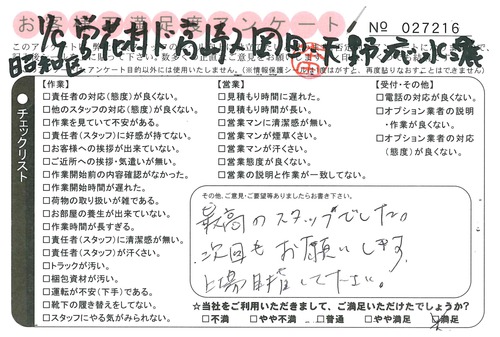 お客様不満足度アンケート
№ 027216
昭和区
アンケート目的以外には使用いたしません。(※情報保護シール1度はがすと、再度貼りなおすことはできません)
チェックリスト
【作業】
□責任者の対応(態度)が良くない。
□他のスタッフの対応(態度)が良くない。
□作業を見ていて不安がある。
□責任者(スタッフ)に好感が持てない。
□お客様への挨拶が出来ていない。
□ご近所への挨拶・気遣いが無い。
□作業開始前の内容確認がなかった。
□作業開始時間が遅れた。
□荷物の取り扱いが雑である。
□お部屋の養生が出来ていない。
□作業時間が長すぎる。
□責任者(スタッフ)に清潔感が無い。
□責任者(スタッフ)が汗くさい。
□トラックが汚い。
□梱包資材が汚い。
□運転が不安(下手)である。
□靴下の履き替えをしてない。
□スタッフにやる気がみられない。
【営業】
□見積もり時間に遅れた。
□見積もり時間が長い。
□営業マンに清潔感が無い。
□営業マンが煙草くさい。
□営業マンが汗くさい。
□営業態度が良くない。
□営業の説明と作業が一致してない。
【受付・その他】
□電話の対応が良くない。
□オプション業者の説明
・作業が良くない。
□オプション業者の対応
(態度)が良くない。
その他、ご意見・ご要望等ありましたらお書き下さい。
最高のスタッフでした。
次回もお願いします。
上場目指して下さい。
☆当社をご利用いただきまして、ご満足いただけたでしょうか?
□不満 □やや不満 □普通 □やや満足 □満足